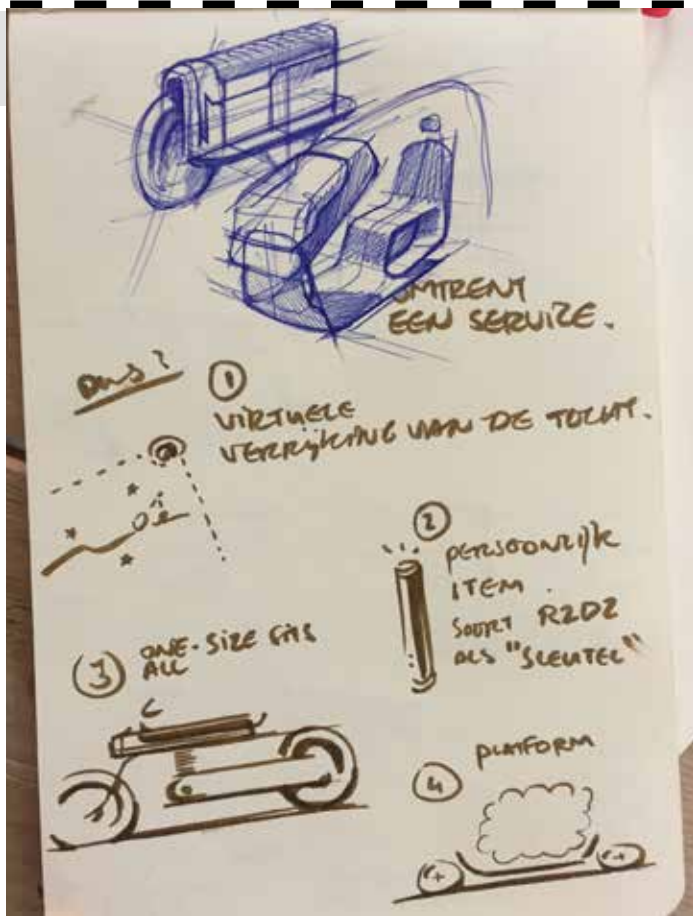 OMTRENT
EEN SERVICE.
DUS?
1
VIRTUELE
VERRIJKING VAN DE TOCHT.
2
PERSOONLIJK
ITEM.
SOORT R2D2
ALS "SLEUTEL"
3
ONE-SIZE FITS
ALL
4
PLATFORM